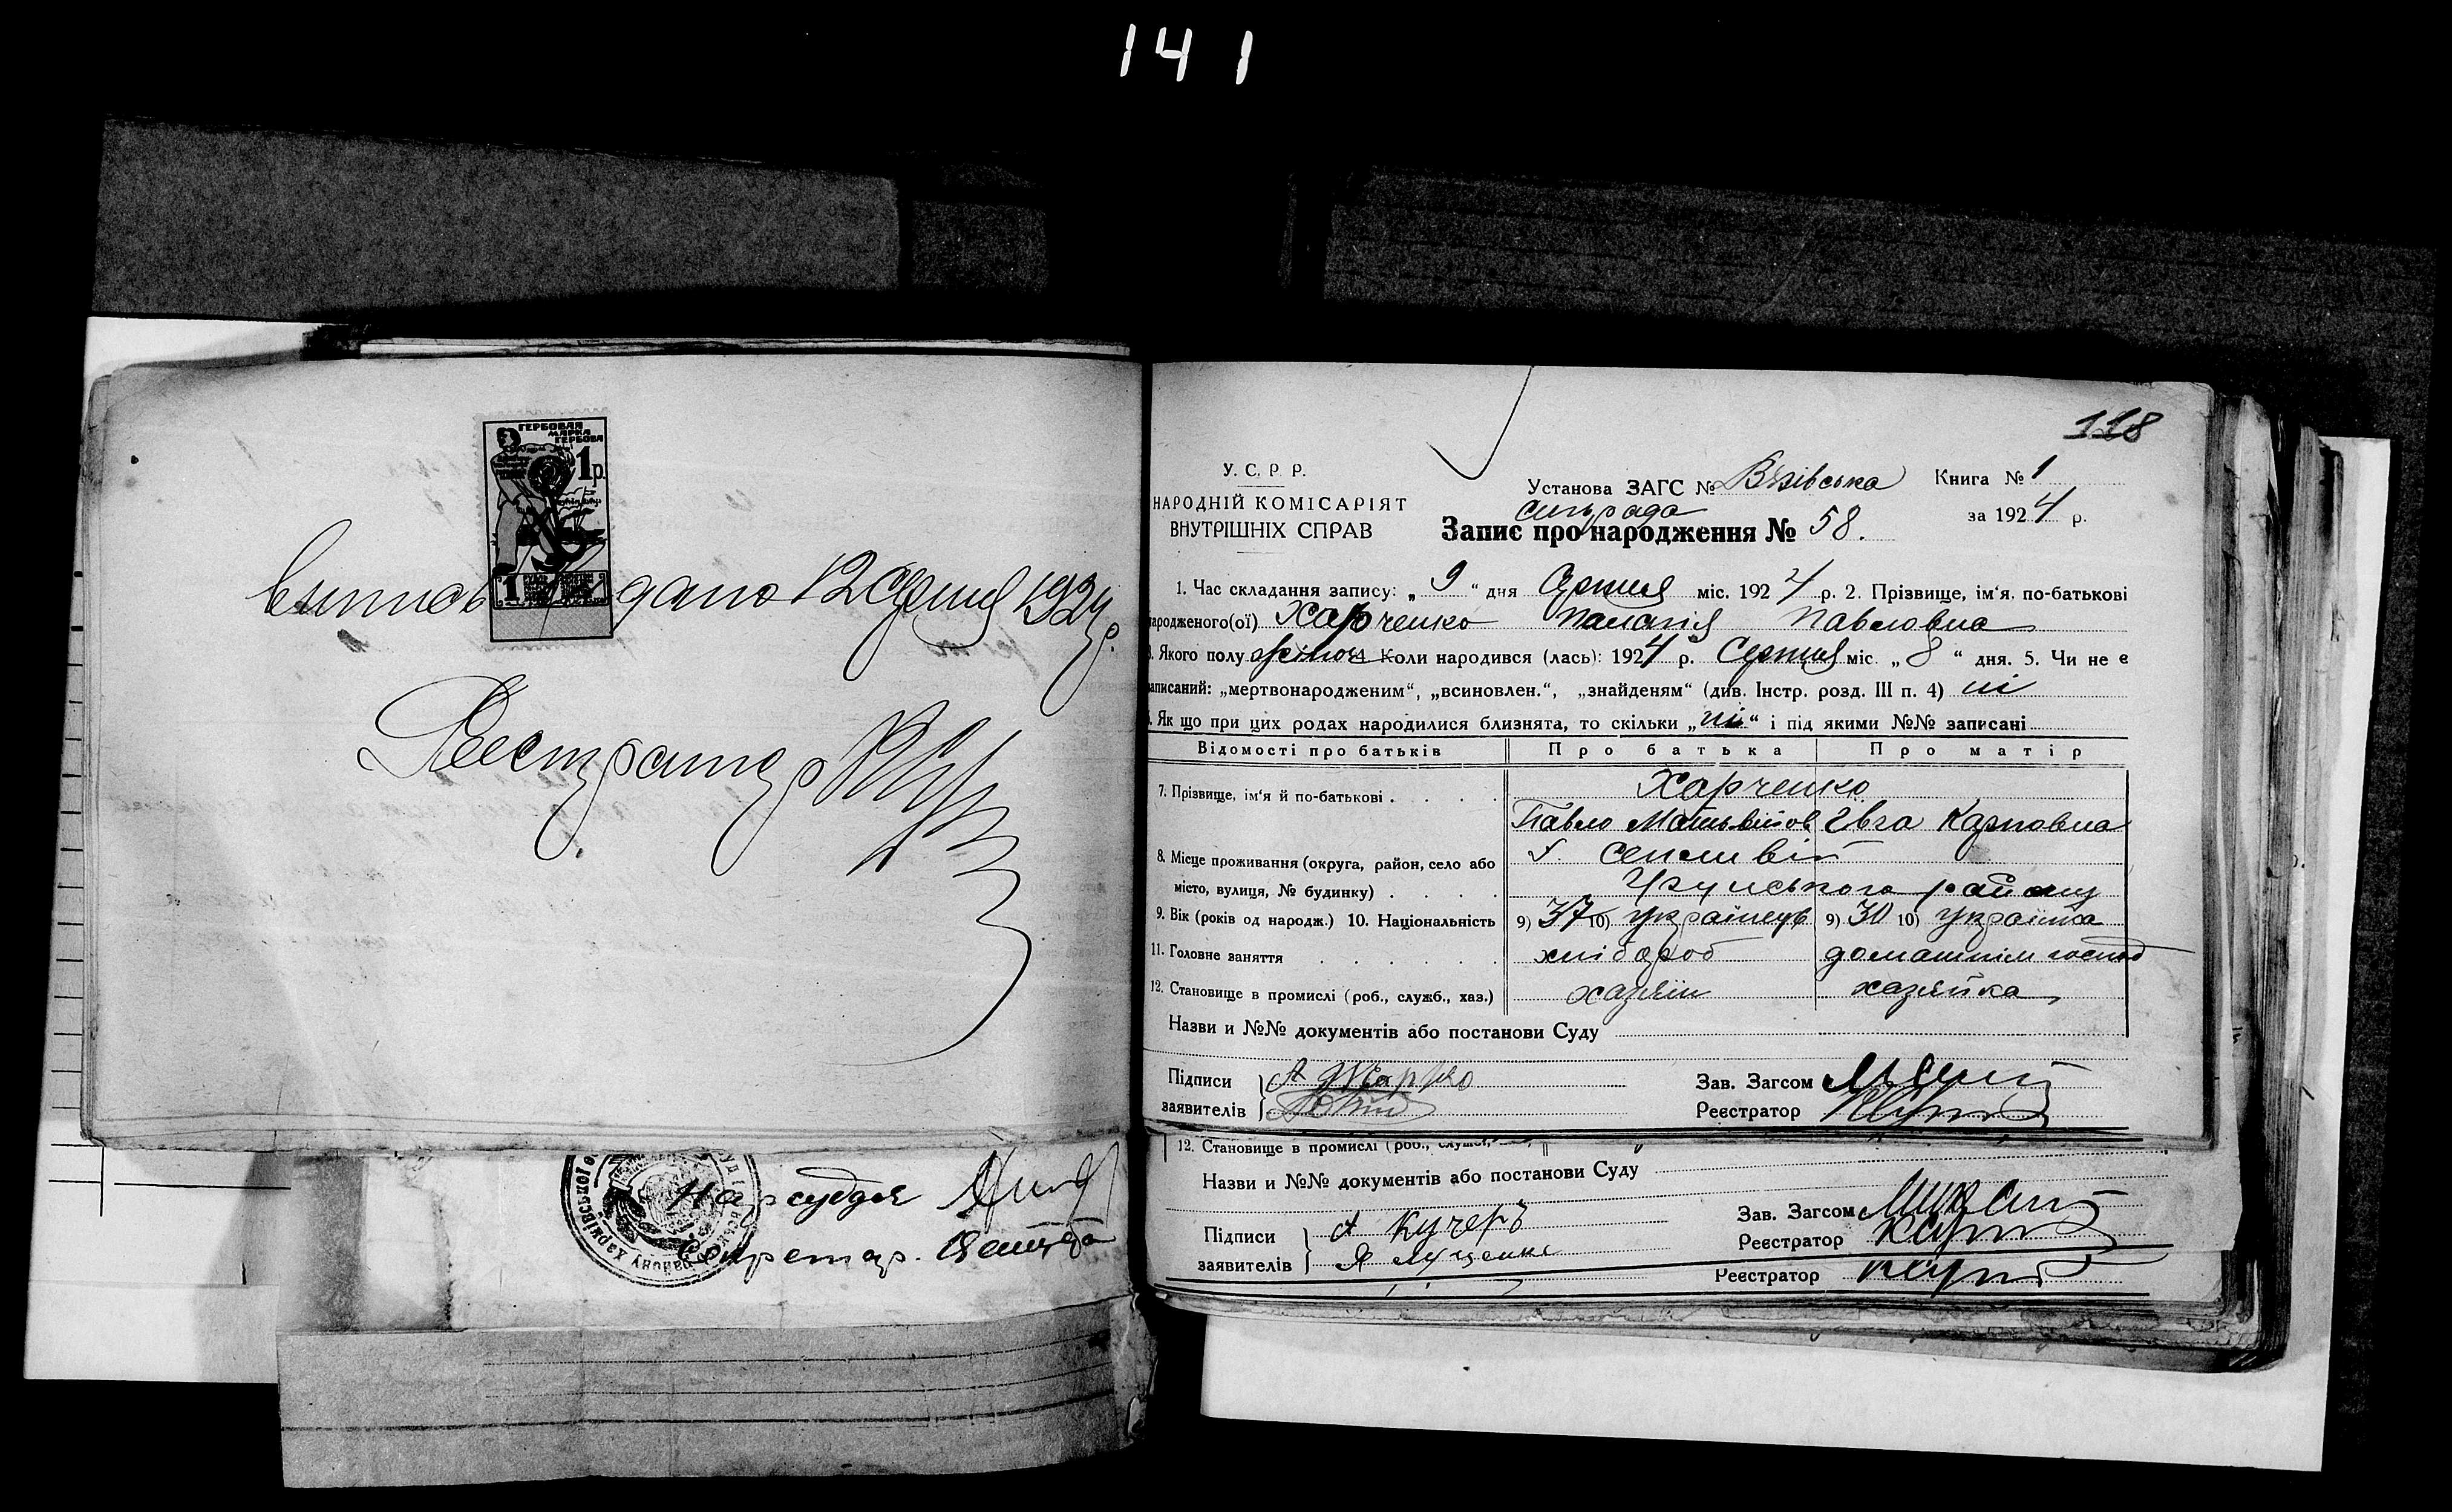 141
ГЕРБОВАЯ
МАРКА
ГЕРБОВА
1 р.
1
дано 12 Серпня 1924 р.
Реєстратор
118
У. С. Р. Р.
НАРОДНІЙ КОМІСАРІЯТ
ВНУТРІШНІХ СПРАВ
Установа ЗАГС № Вязівська
Сільрада
Книга № 1
за 1924 р.
Запис про народження № 58.
1. Час складання запису: „ 9 “ дня Серпня міс. 1924 р. 2. Прізвище, ім'я. по-батькові
народженого(ої) Харченко Палагія Павловна
3. Якого полу жіночя Коли народився (лась): 1924 р. Серпня міс. „ 8 “ дня. 5. Чи не є
записаний: „мертвонародженим“, „всиновлен.“, „знайденям“ (див. Інстр. розд. III п. 4) ні
Як що при цих родах народилися близнята, то скільки „ ні “ і під якими №№ записані
Відомості про батьків Про батька Про матір
7. Прізвище, ім'я й по-батькові . . . . Харченко
Павло Матьвійов Евга Карповна
8. Місце проживання (округа, район, село або
місто, вулиця, № будинку) . . . . району
9. Вік (років од народж.) 10. Національність 9) 37 10) українець 9) 30 10) українка
11. Головне заняття . . . . . . хлібороб домашнім господ
12. Становище в промислі (роб., служб., хаз.) хазяїн хазяйка
Назви и №№ документів або постанови Суду
Підписи
заявителів
Зав. Загсом
Реєстратор
12. Становище в промислі (роб.,
Назви и №№ документів або постанови Суду
Підписи
заявителів
А Кучеръ
Я Луценко
Зав. Загсом
Реєстратор
Реєстратор
району Харківської
Нарсуддя
Секретар.